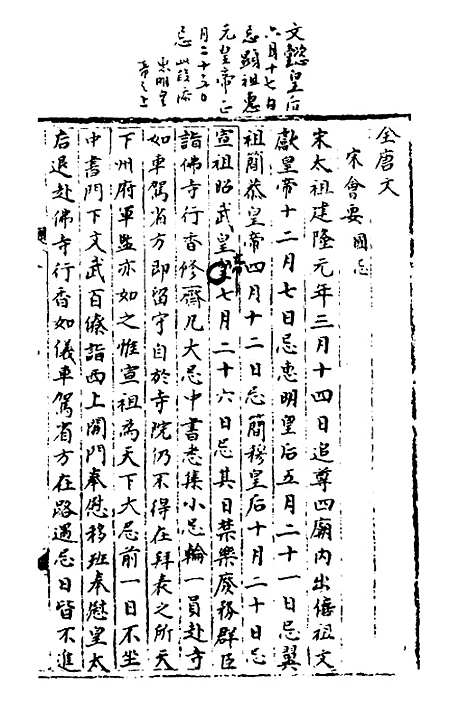 文懿皇后
六月十七日
忌顯祖惠
元皇帝正
月二十五日
忌此段添
惠明皇
帝之上
全唐文
宋會要 國忌
宋太祖建隆元年三月十四日追尊四廟内出僖祖文
獻皇帝十二月七日忌惠明皇后五月二十一日忌翼
祖簡恭皇帝四月十二日忌簡穆皇后十月二十日忌
宣祖昭武皇帝七月二十六日忌其日禁樂廢務群臣
詣佛寺行香修齋凡大忌中書悉集小忌輪一員赴寺
如車駕省方即留守自於寺院仍不得在拜表之所天
下州府軍監亦如之惟宣祖為天下大忌前一日不坐
中書門下文武百僚詣西上閤門奉慰移班奉慰皇太
后退赴佛寺行香如儀車駕省方在路遇忌日皆不進